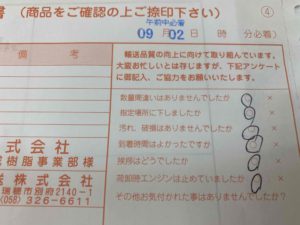 書 (商品をご確認の上ご捺印下さい) ④
午前中必着
09月02日 時 分必着)
備考
輸送品質の向上に向けて取り組んでいます。
大変お忙しいとは存じますが、下記アンケート
に御記入、ご協力をお願いいたします。
数量間違いはありませんでしたか ×
指定場所に下しましたか ×
汚れ、破損はありませんでしたか ×
到着時間はよかったですか ×
挨拶はどうでしたか ×
荷卸時エンジンは止めていましたか ×
その他お気付かれた事はありませんでしたか?
株式会社
成樹脂事業部様
送株式会社
瑞穂市別府2140-1
(058) 326-6611